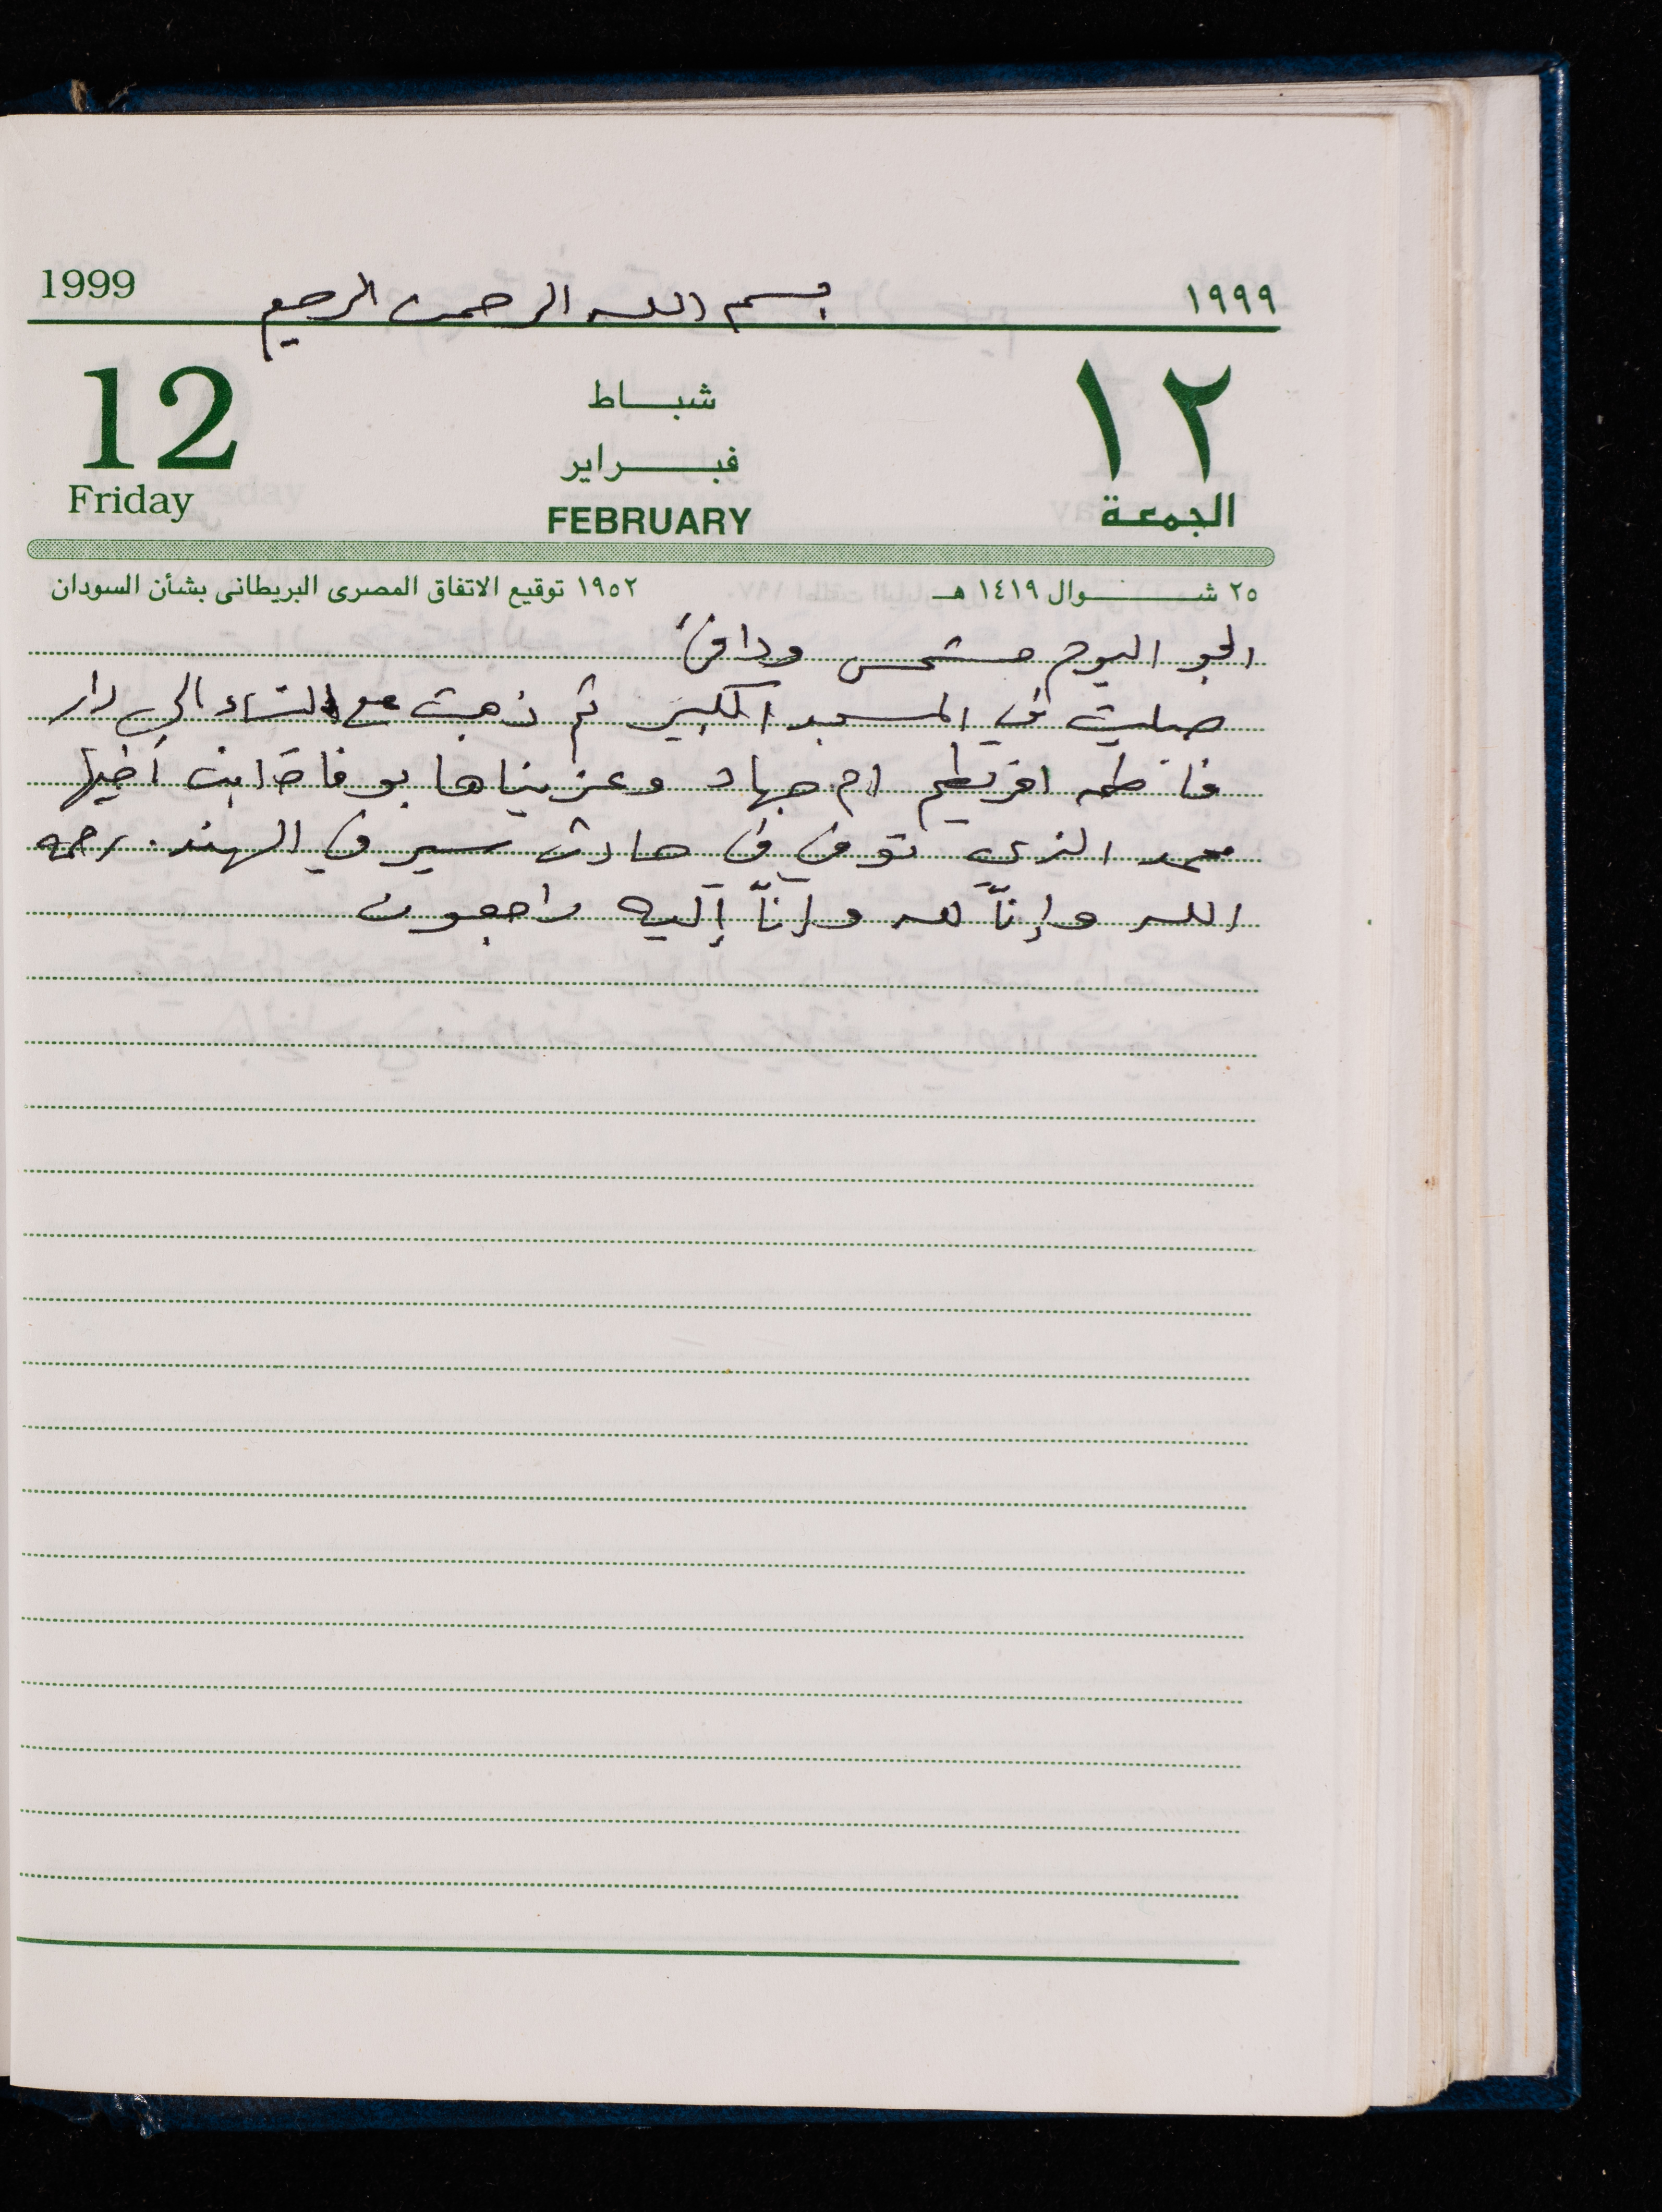 1999 بسم الله الرحمن الرحيم ١٩٩٩
12 شبـاط ١٢
فبـراير
Friday FEBRUARY الجمعة
٢٥ شـوال ١٤١٩ هـ ١٩٥٢ توقيع الاتفاق المصرى البريطانى بشأن السودان
الجو اليوم مشمس ودافئ
صليت في المسجد الكبير ثم ذهبت مع النساء الى دار
فاطمه افريطم ام جهاد وعزيناها بوفاة ابن أخيها
محمد الذي توفي في حادث سير في الهند. رحمه
الله وإنّا لله وإنّا إليه راجعون